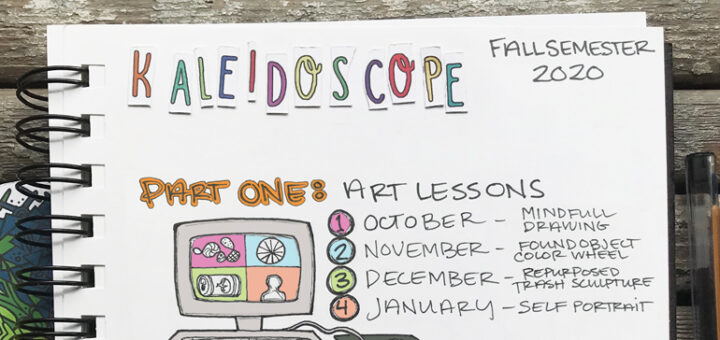 KALEIDOSCOPE
FALL SEMESTER
2020
PART ONE: ART LESSONS
1 OCTOBER - MINDFULL
DRAWING
2 NOVEMBER - FOUND OBJECT
COLOR WHEEL
3 DECEMBER - REPURPOSED
TRASH SCULPTURE
4 JANUARY - SELF PORTRAIT